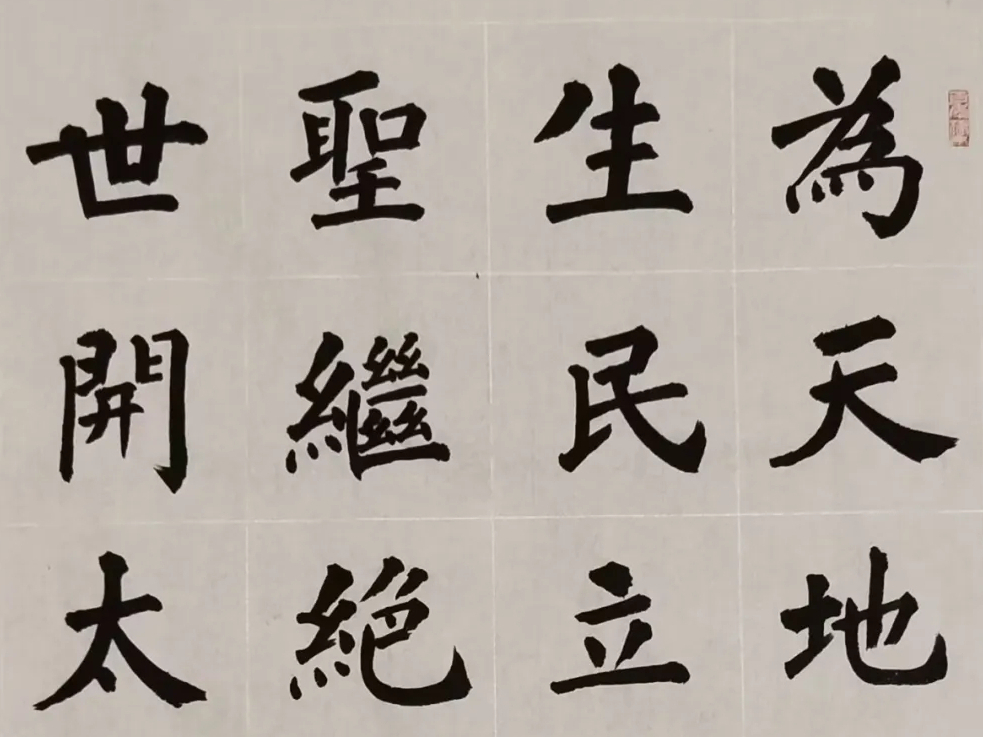 為天地
生民立
聖繼絕
世開太